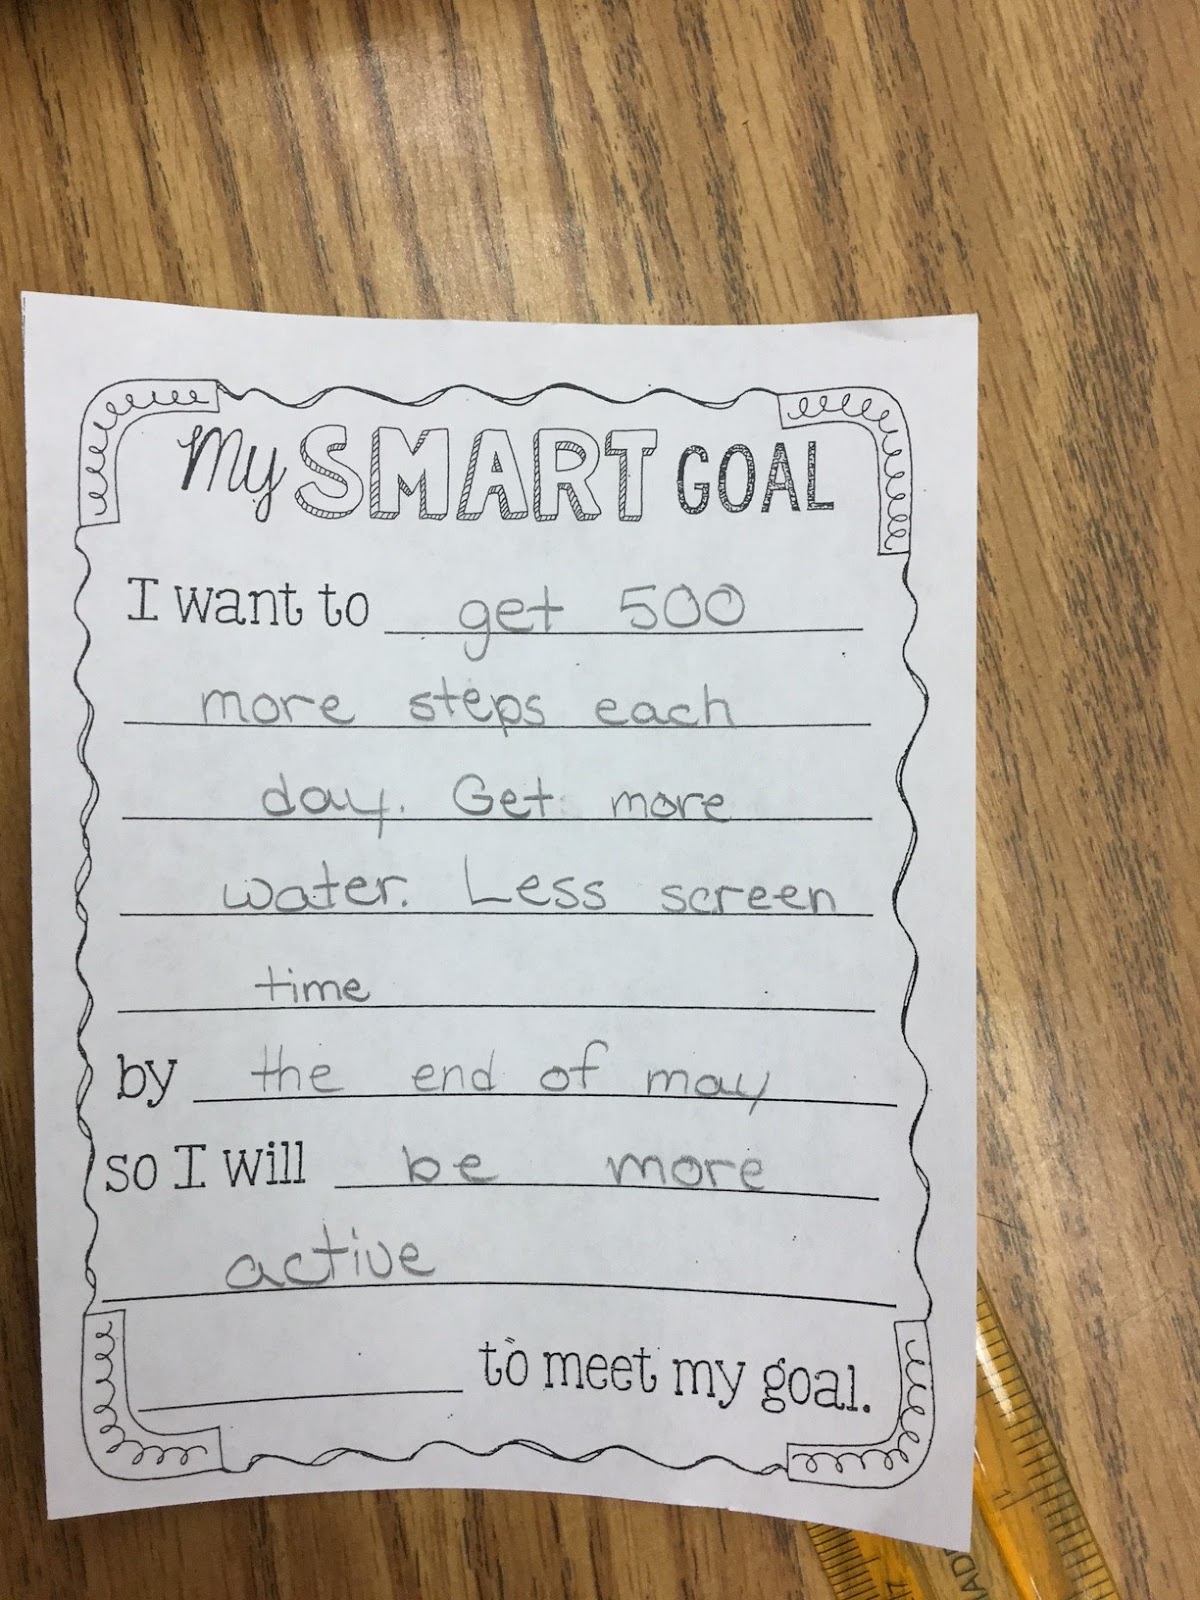 My SMART GOAL
I want to get 500
more steps each
day. Get more
water. Less screen
time
by the end of may
so I will be more
active
to meet my goal.